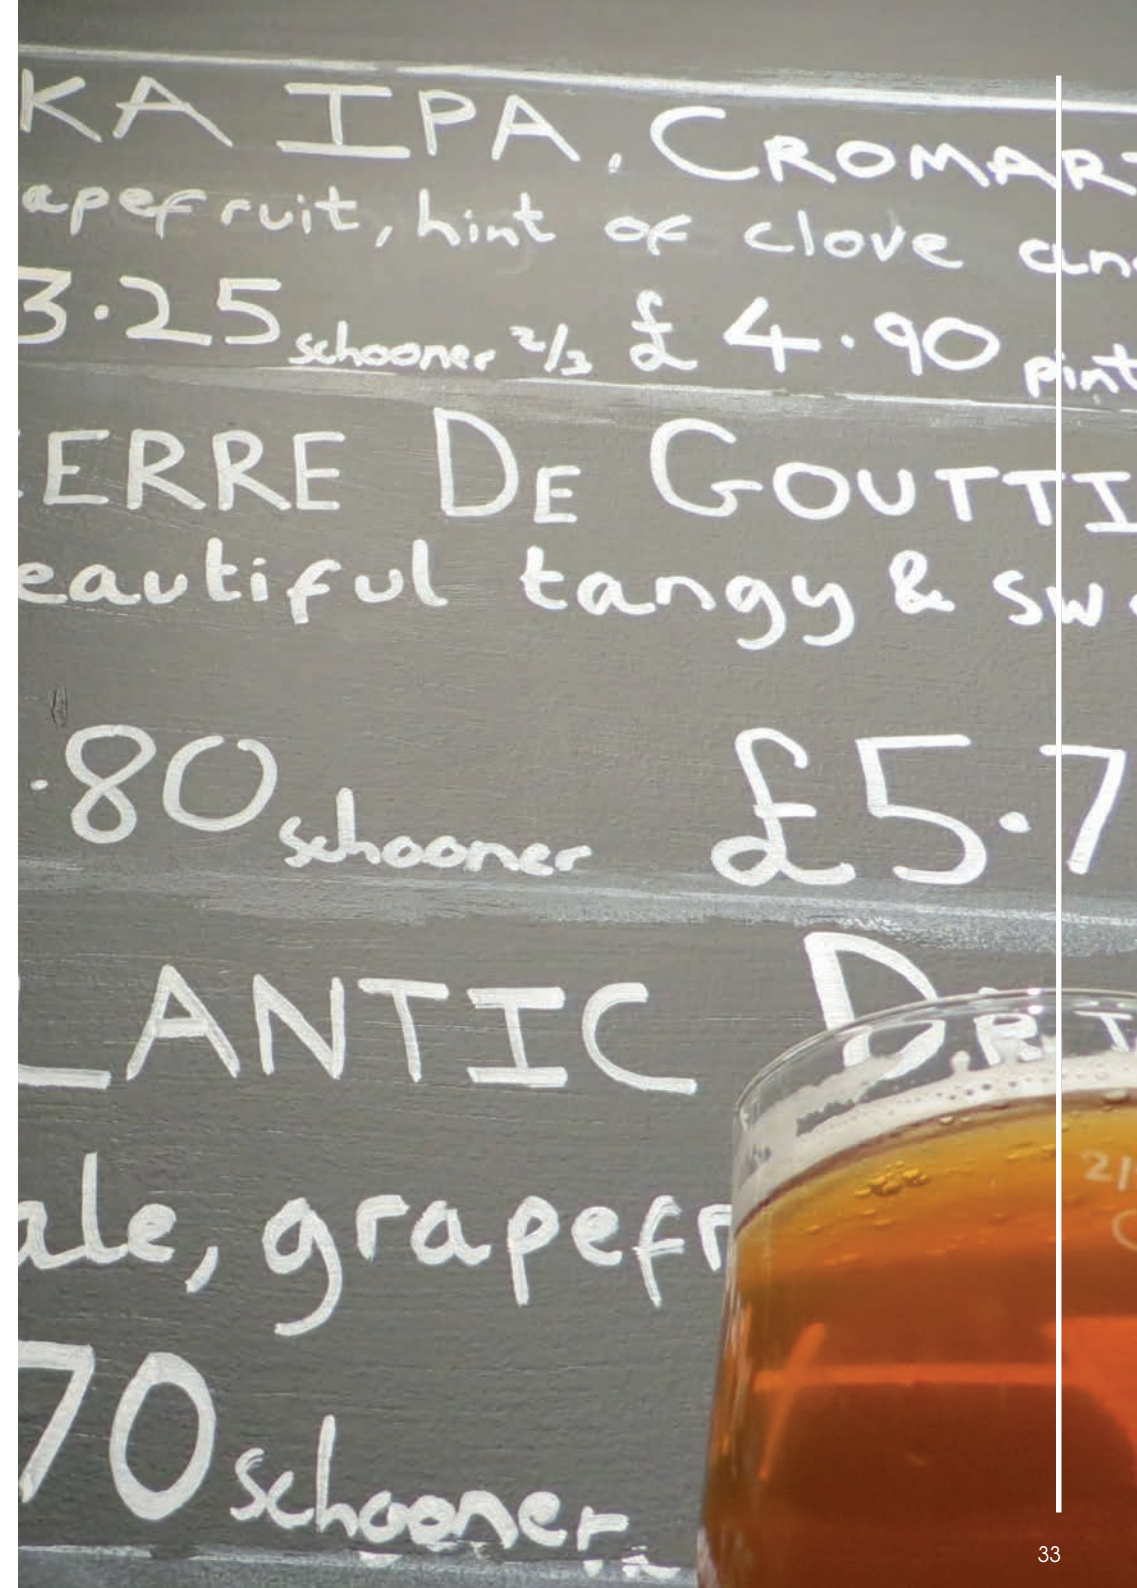 KA IPA. CROMART
apefruit, hint of clove and
3.25 schooner 2/3 £4.90 pint
ERRE DE GOUTTI
eautiful tangy & sw
.80 schooner £5.7
LANTIC DRI
ale, grapefr
70 schooner
2/
33